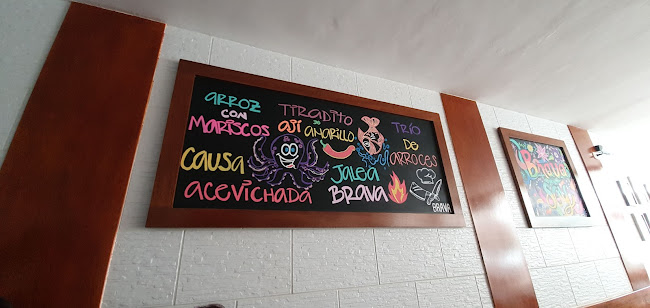 ARROZ
CON
MARISCOS
TIRADITO
DE
AJÍ AMARILLO
TRÍO
DE
ARROCES
CAUSA
ACEVICHADA
JALEA
BRAVA
BRAVA